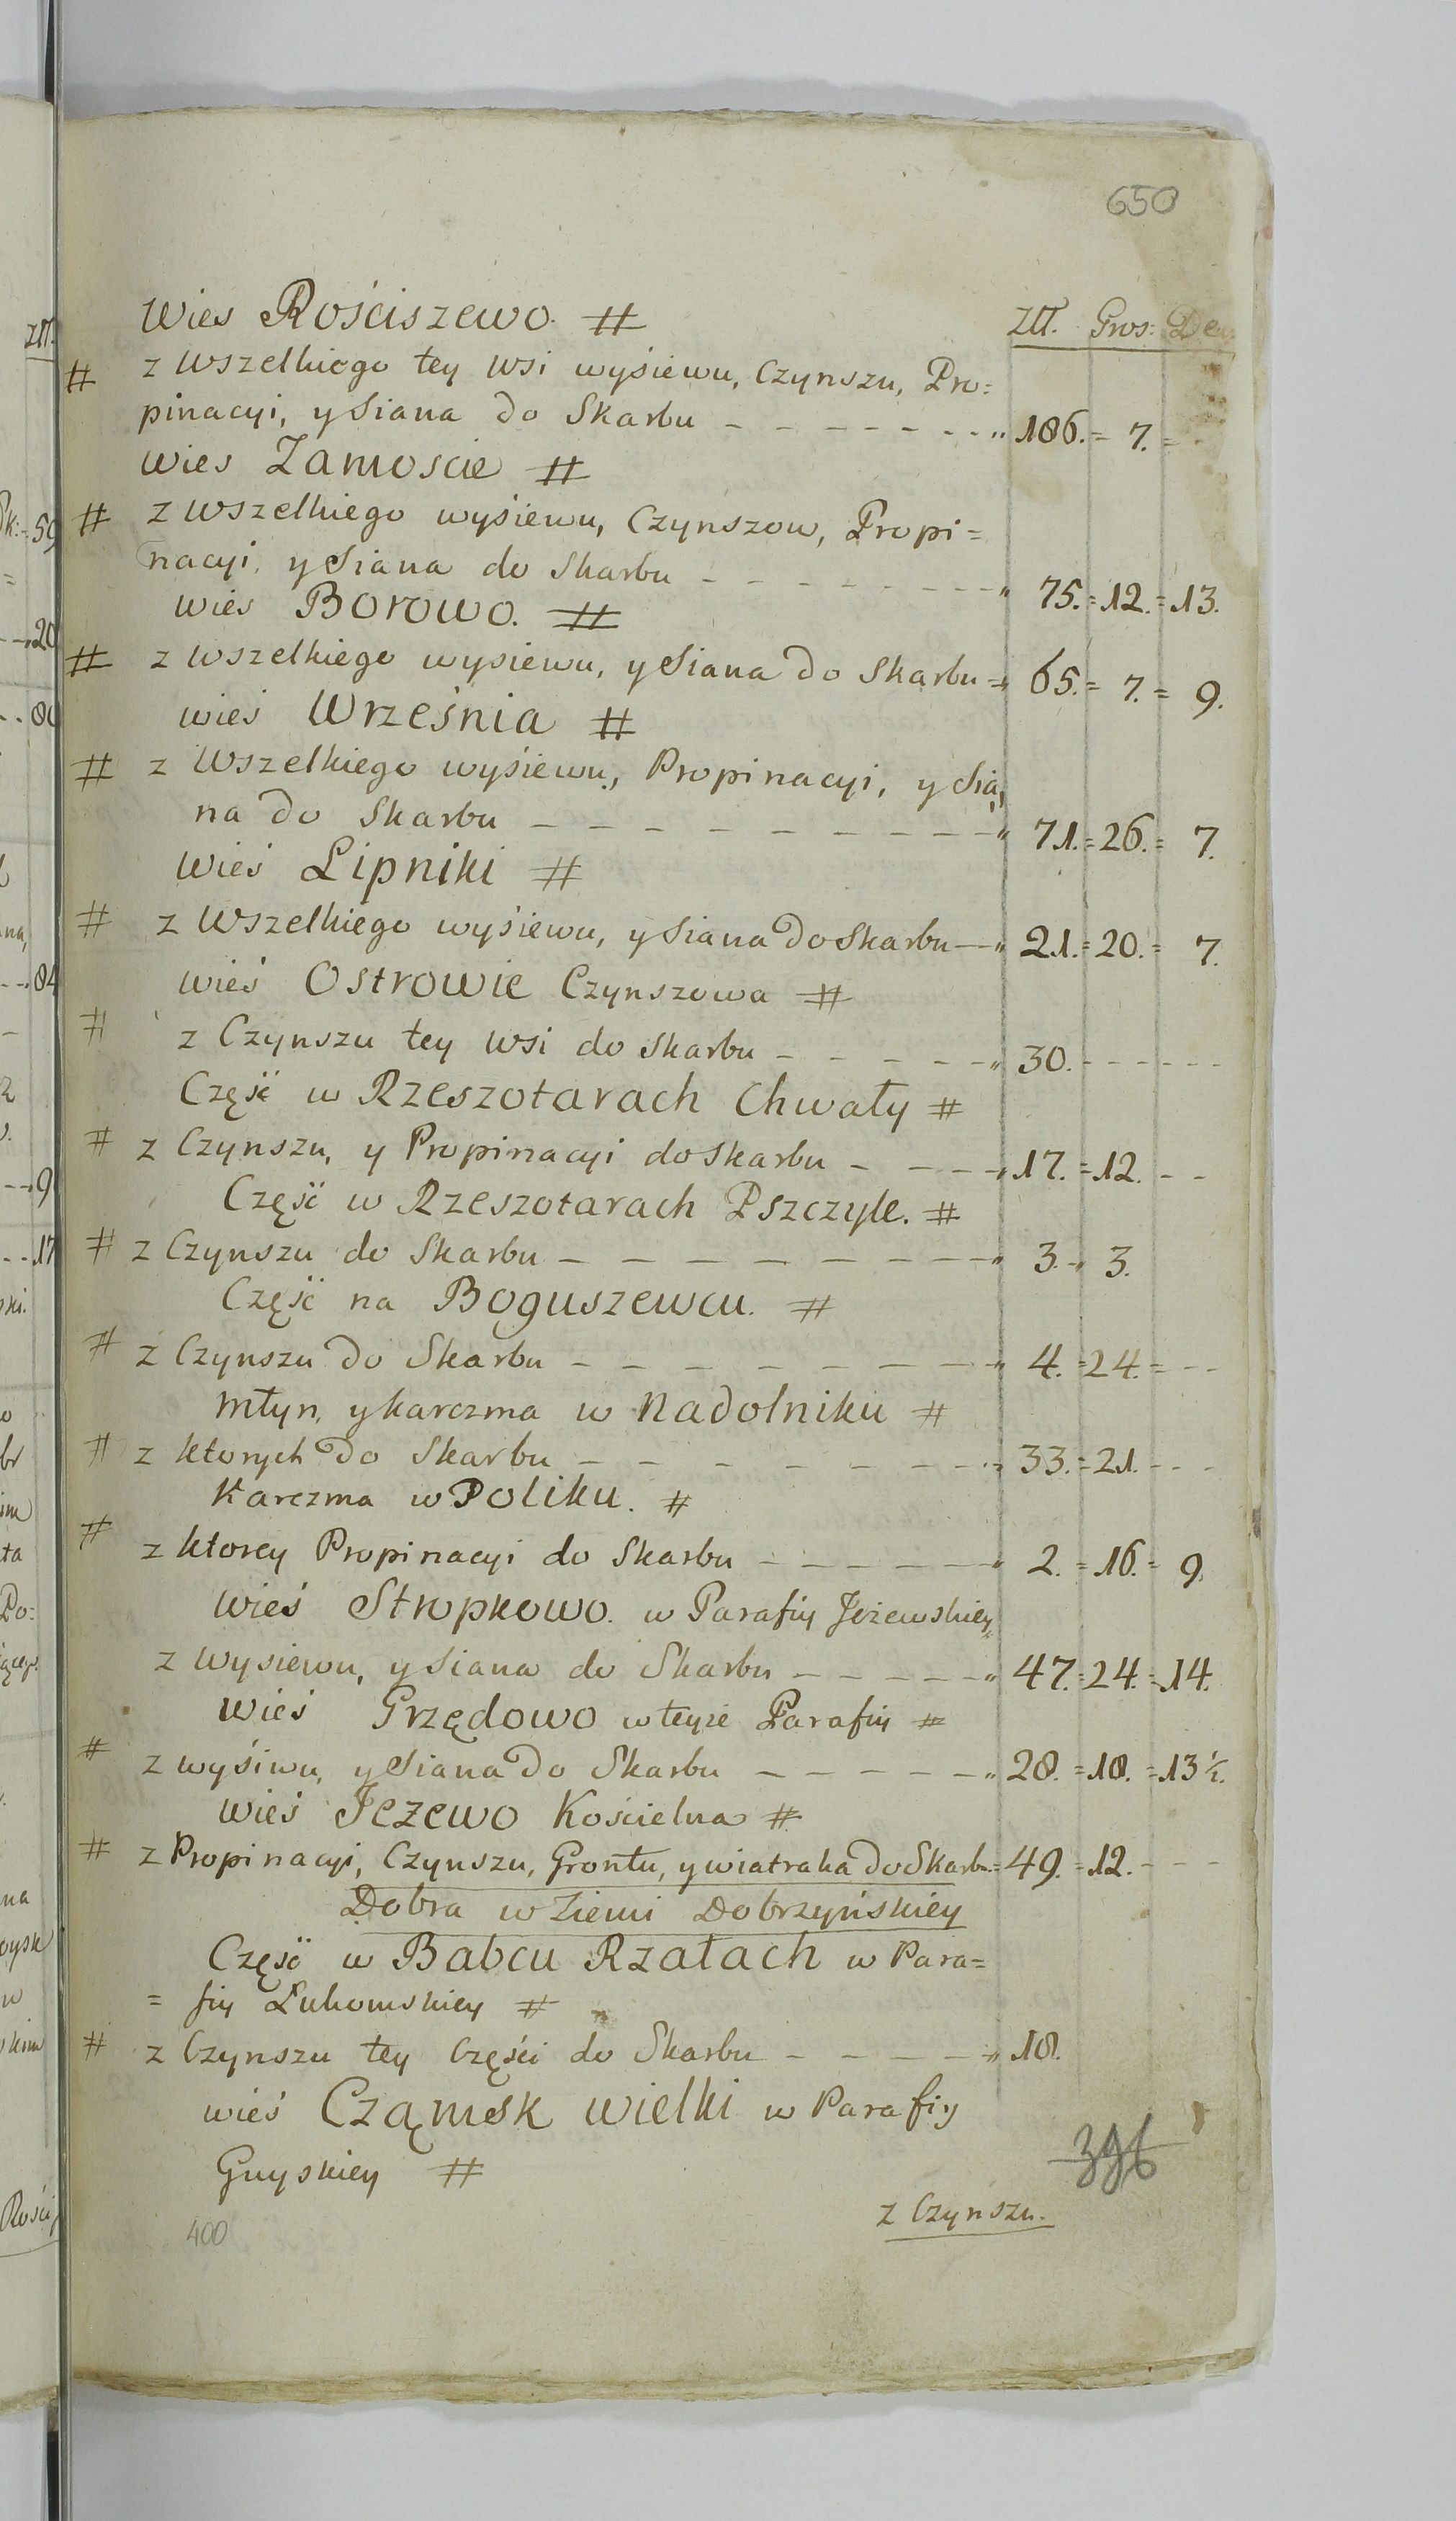 650
Wies Rościszewo. #
Złł. Gros: Den:
# z Wszelkiego tey wsi wyśiewu, Czynszu, Pro=
pinacyi, y Siana do Skarbu - - - - - - - - " 186. = 7. = -
wies Zamoscie #
# z Wszelkiego wyśiewu, Czynszow, Propi=
nacyi, y Siana do Skarbu - - - - - - - - " 75. = 12. = 13.
wies Borowo. #
# z wszelkiego wysiewu, y Siana do Skarbu = 65. = 7. = 9.
wieś Września #
# z Wszelkiego wyśiewu, Propinacyi, y Sia,
na do Skarbu - - - - - - - - - " 71. = 26. = 7.
wieś Lipniki #
# z Wszelkiego wyśiewu, y Siana do Skarbu - " 21. = 20. = 7.
wieś Ostrowie Czynszowa #
# z Czynszu tey wsi do Skarbu - - - - - " 30. - - - - - -
Część w Rzeszotarach Chwały #
# z Czynszu, y Propinacyi do Skarbu - - - - " 17. = 12. - -
Część w Rzeszotarach Pszczyle. #
# z Czynszu do Skarbu - - - - - - - - " 3. " 3.
Część na Boguszewcu. #
# z Czynszu do Skarbu - - - - - - - - " 4. = 24. = - -
młyn, y karczma w Nadolniku #
# z ktorych do Skarbu - - - - - - - - " 33. = 21. - - -
Karczma w Poliku. #
# z ktorey Propinacyi do Skarbu - - - - - " 2. = 16. = 9.
wieś Stropkowo. w Parafiy Jeżewskiey
z wysiewu, y Siana do Skarbu - - - - - " 47. = 24. = 14.
wieś Grzędowo w teyże Parafiy #
# z wyśiwu, y Siana do Skarbu - - - - - " 28. = 18. = 13 ½.
wieś Jeżewo Kościelna #
# z Propinacyi, Czynszu, Grontu, y wiatraka do Skarbu = 49. = 12. - - -
Dobra w Ziemi Dobrzyńskiey
Część w Babcu Rzałach w Para=
= fiy Lukomskiey #
# z Czynszu tey Części do Skarbu - - - - - " 18.
wieś Cząmsk wielki w Parafiy
Guyskiey #
396
z Czynszu.
400